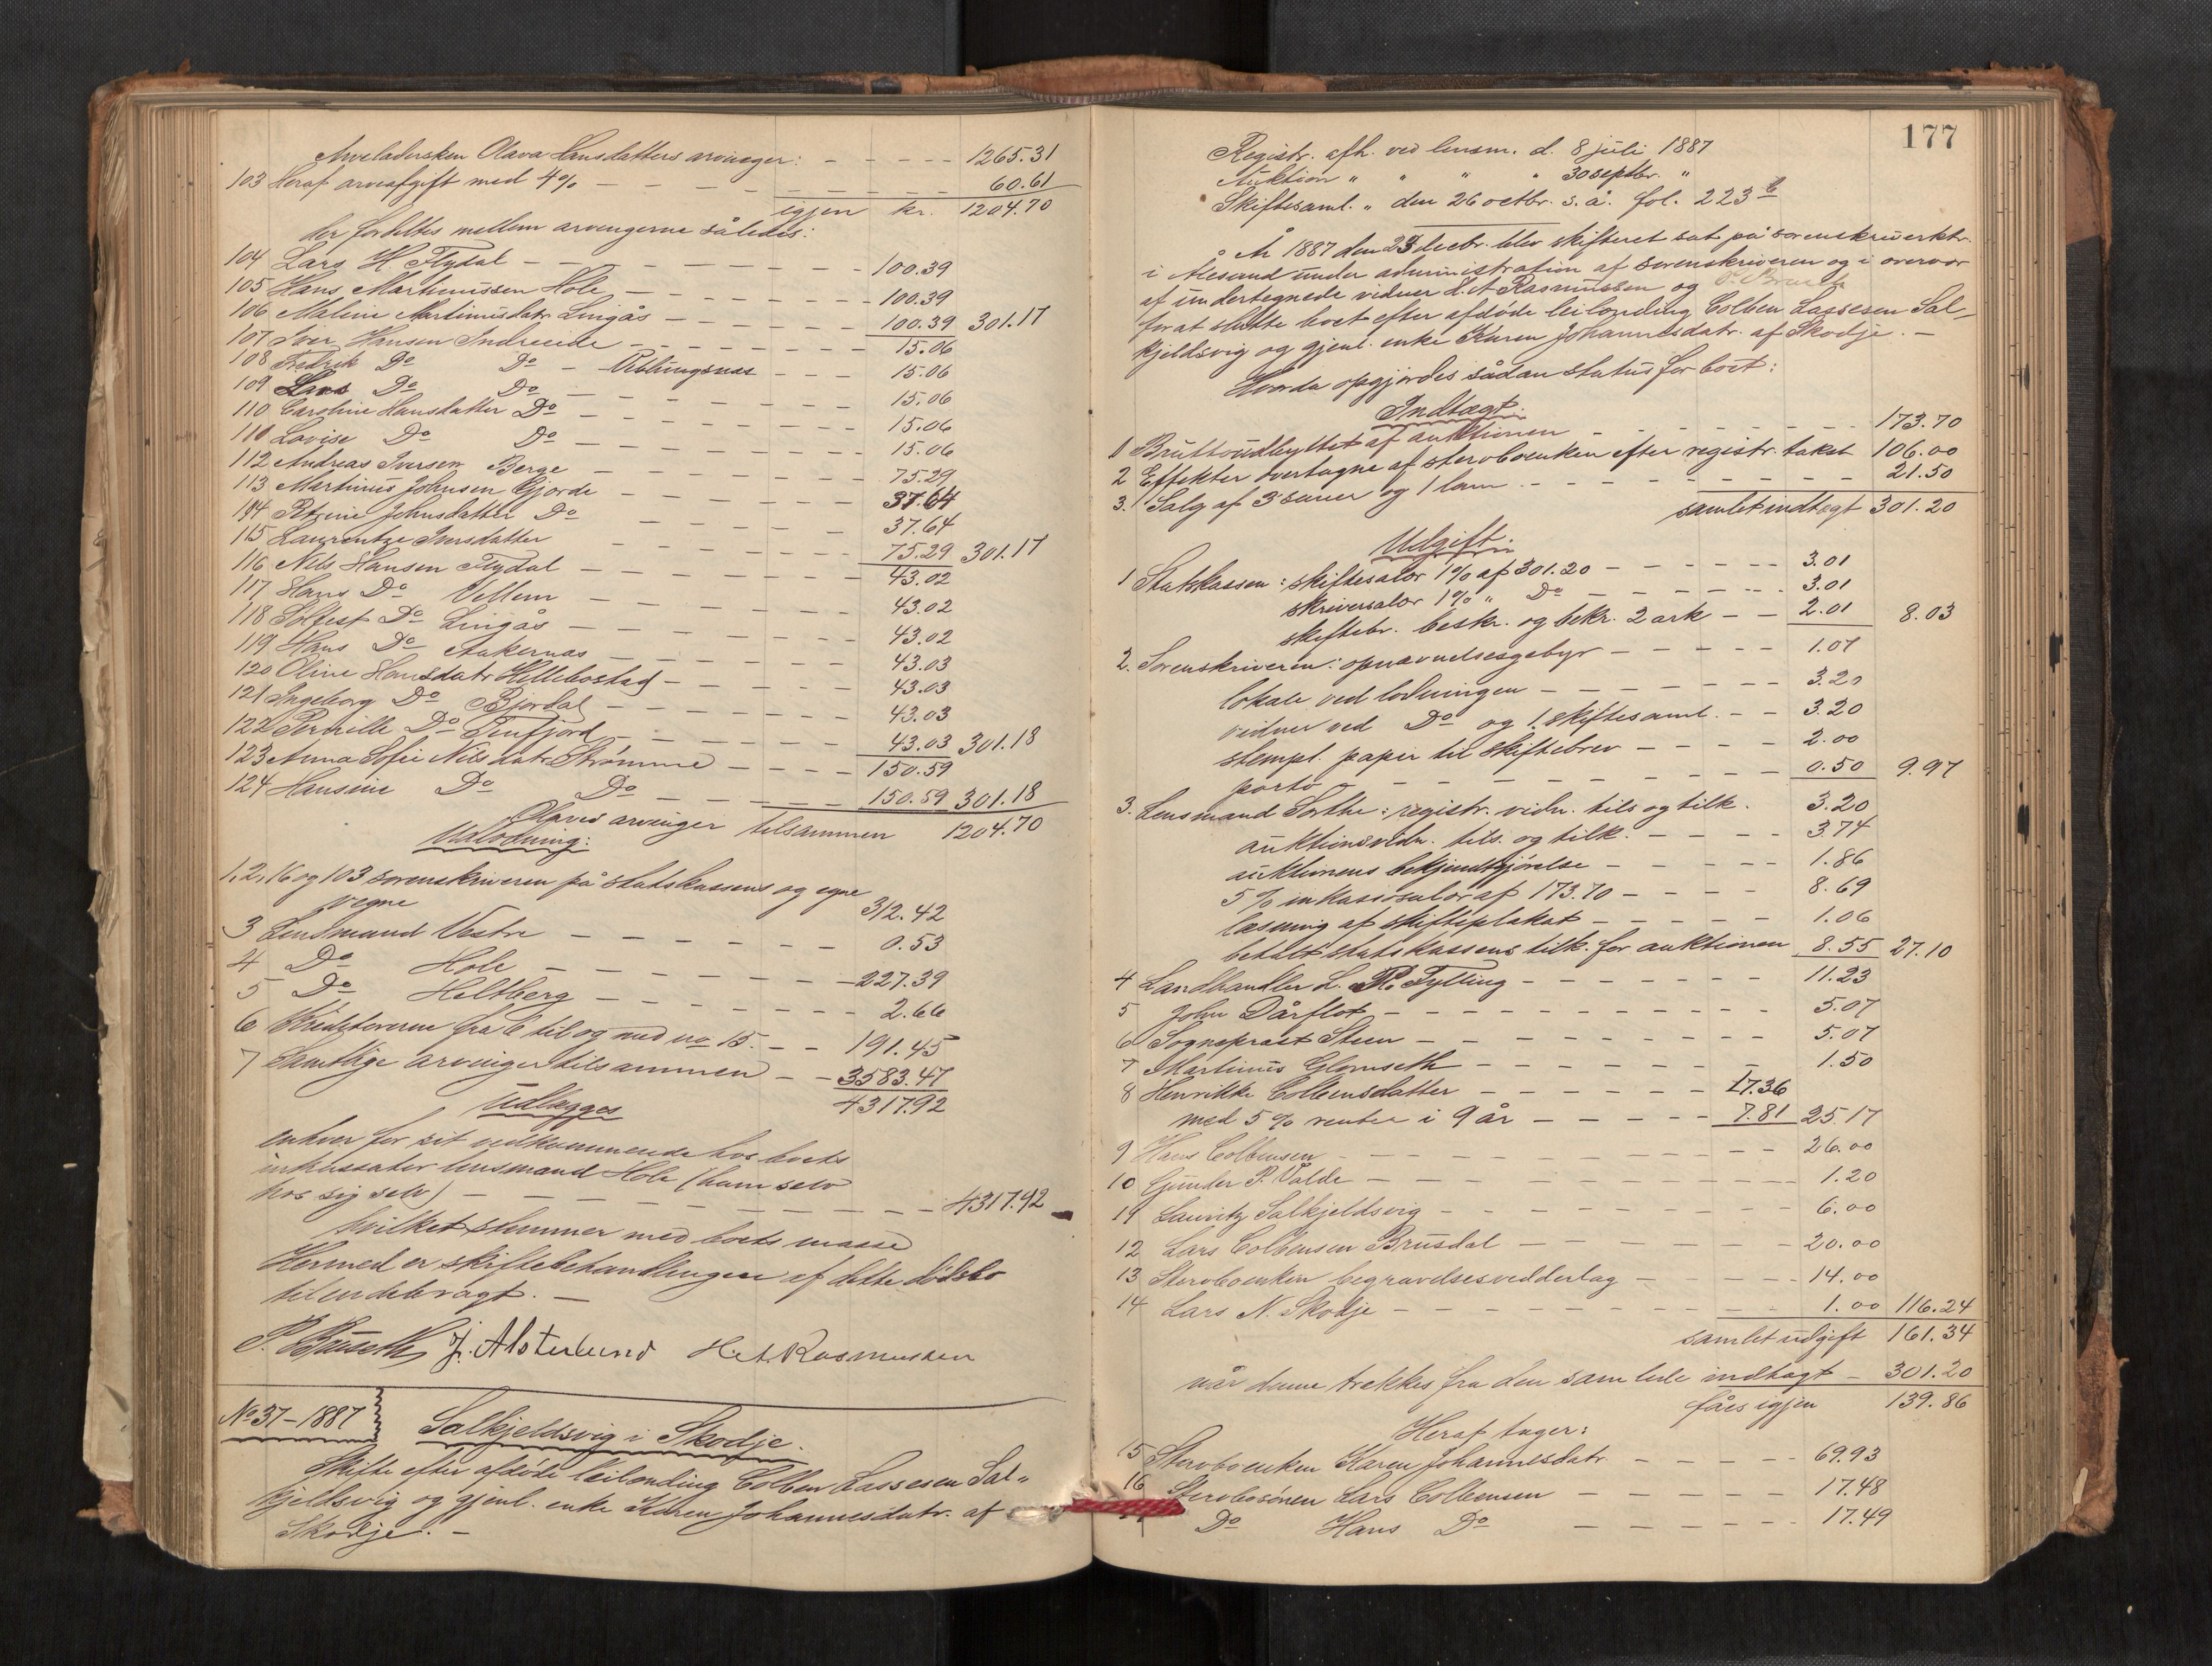 Arveladersken Olava Hansdatters arvinger: - - - - - 1265.31
103 Heraf arveafgift med 4% - - - - - - 60.61
igjen kr. 1204.70
der fordeltes mellem arvingerne således:
104 Lars H Flydal - - - - 100.39
105 Hans Martinussen Hole - - - - 100.39
106 Maline Martinusdatr Lingås - - - - 100.39 301.17
107 Iver Hansen Indreeide - - - - 15.06
108 Fredrik Do Do - Veblungsnes - - - 15.06
109 Lars Do Do - - - - 15.06
110 Caroline Hansdatter Do - - - - 15.06
110 Lovise Do Do - - - - 15.06
112 Andreas Iversen Berge - - - - 75.29
113 Martinus Johnsen Gjerde - - - - 37.64
114 Petrine Johnsdatter Do - - - - 37.64
115 Laurentze Iversdatter - - - - 75.29 301.17
116 Nils Hansen Flydal - - - - 43.02
117 Hans Do Vellem - - - - 43.02
118 Solfest Do Lingås - - - - 43.02
119 Hans Do Stakernæs - - - - 43.03
120 Oline Hansdatr Hellebostad - - - - 43.03
121 Ingeborg Do Bjordal - - - - 43.03
122 Pernille Do Tenfjord - - - - 43.03 301.18
123 Anna Sofie Nilsdatr Strømme - - - - 150.59
124 Hansine Do Do - - - - 150.59 301.18
Olavas arvinger tilsammen 1204.70
Udlodning:
1, 2, 16 og 103 sorenskriveren på statskassens og egne
vegne 312.42
3 Lensmand Vestre - - - - 0.53
4 Do Hole - - - - 227.39
5 Do Heltberg - - - - 2.66
6 Kreditorerne fra 6 til og med no 15. - - 191.45
7 Samtlige arvinger tilsammen - - 3583.47
4317.92
Udlægges
enhver for sit vedkommende hos boets
inkassator lensmand Hole (ham selv
hos sig selv) - - - - 4317.92
hvilket stemmer med boets masse
Hermed er skiftebehandlingen af dette dødsbo
tilendebragt. -
J. Alsterlund H. A. Rasmussen
No 37 - 1887
Salkjeldsvig i Skodje.
Skifte efter afdøde leilending Colben Lassesen Sal-
kjeldsvig og gjenl. enke Karen Johannesdatr. af
Skodje. -
177
Registr. afh. ved lensm. d. 8 juli 1887
Auktion " " " " 30 septbr. "
Skiftesaml. " den 26 octbr. s. å. fol. 223 b
År 1887 den 23 decbr. blev skifteret sat på sorenskriverktr.
i Ålesund under administration af sorenskriveren og i overvær
af undertegnede vidner H. A Rasmussen og
for at slutte boet efter afdøde leilending Colben Lassesen Sal-
kjeldsvig og gjenl. enke Karen Johannesdatr. af Skodje. -
Hvorda opgjordes sådan status for boet:
Indtægt.
1 Bruttoudbyttet af auktionen - - - - 173.70
2 Effekter overtagne af stervboenken efter registr. takst 106.00
3. Salg af 3 sauer og 1 lam - - - - 21.50
samlet indtægt 301.20
Udgift.
1 Statskassen: skiftesalær 1% af 301.20 - - - - 3.01
skriversalær 1% " Do - - - - 3.01
skiftebr. beskr. og bekr. 2 ark - - 2.01 8.03
2. Sorenskriveren: opnævnelsesgebyr - - - - 1.07
lokale ved lodningen - - - - 3.20
vidner ved Do og 1. skiftesaml. - - 3.20
stempl. papir til skiftebrev - - - - 2.00
porto - - - - 0.50 9.97
3. Lensmand Sorthe: registr. vidn. tils og tilk. 3.20
auktionsvidn. tils. og tilk. - - - - 3.74
auktionens bekjendtgjørelse - - - - 1.86
5% inkassosalær af 173.70 - - - - 8.69
læsning af skifteplakat - - - - 1.06
betalt statskassens tilk. for auktionen 8.55 27.10
4 Landhandler L. R. Tylling - - - - 11.23
5 John Dårflot - - - - 5.07
6 Sogneprest Steen - - - - 5.07
7 Martinus Glomseth - - - - 1.50
8 Henrikke Colbensdatter - - - - 17.36
med 5% renter i 9 år - - - - 7.81 25.17
9 Hans Colbensen - - - - 26.00
10 Gunder P. Valde - - - - 1.20
11 Lauritz Salkjeldsvig - - - - 6.00
12 Lars Colbensen Brusdal - - - - 20.00
13 Stervboenken begravelsesvederlag - - - - 14.00
14 Lars N. Skodje - - - - 1.00 116.24
samlet udgift 161.34
når denne trækkes fra den samlede indtægt - 301.20
fåes igjen 139.86
Heraf tager:
15 Stervboenken Karen Johannesdatr - - - - 69.93
16 Stervbosønnen Lars Colbensen - - - - 17.48
Do Hans Do - - - - 17.49